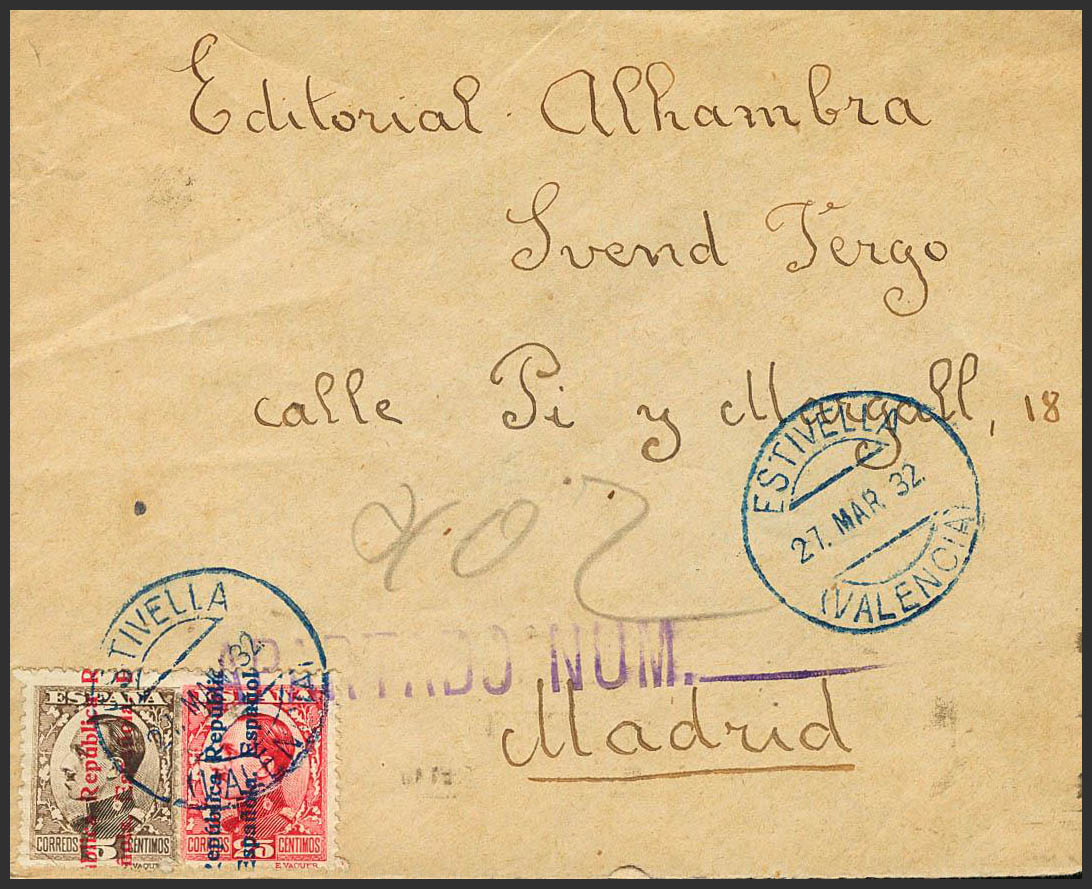 Editorial Alhambra
Svend Tergo
calle Pi y Margall, 18
ESTIVELLA
27. MAR. 32.
(VALENCIA)
402
APARTADO NUM.
Madrid
ESTIVELLA
MAR. 32.
(VALENCIA)
ESPAÑA
República
CORREOS 5 CENTIMOS
E. VAQUER
ESPAÑA
República Republic
Española. Español
CORREOS 25 CENTIMOS
E. VAQUER